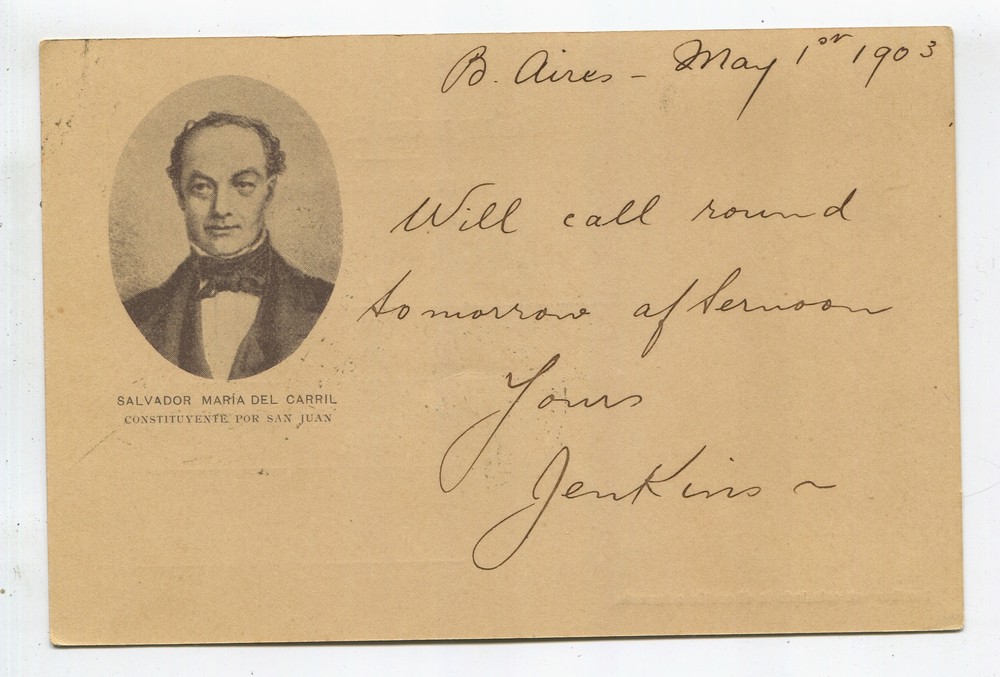 B. Aires - May 1st 1903
Will call round
tomorrow afternoon
Yours
Jenkins ~
SALVADOR MARÍA DEL CARRIL
CONSTITUYENTE POR SAN JUAN